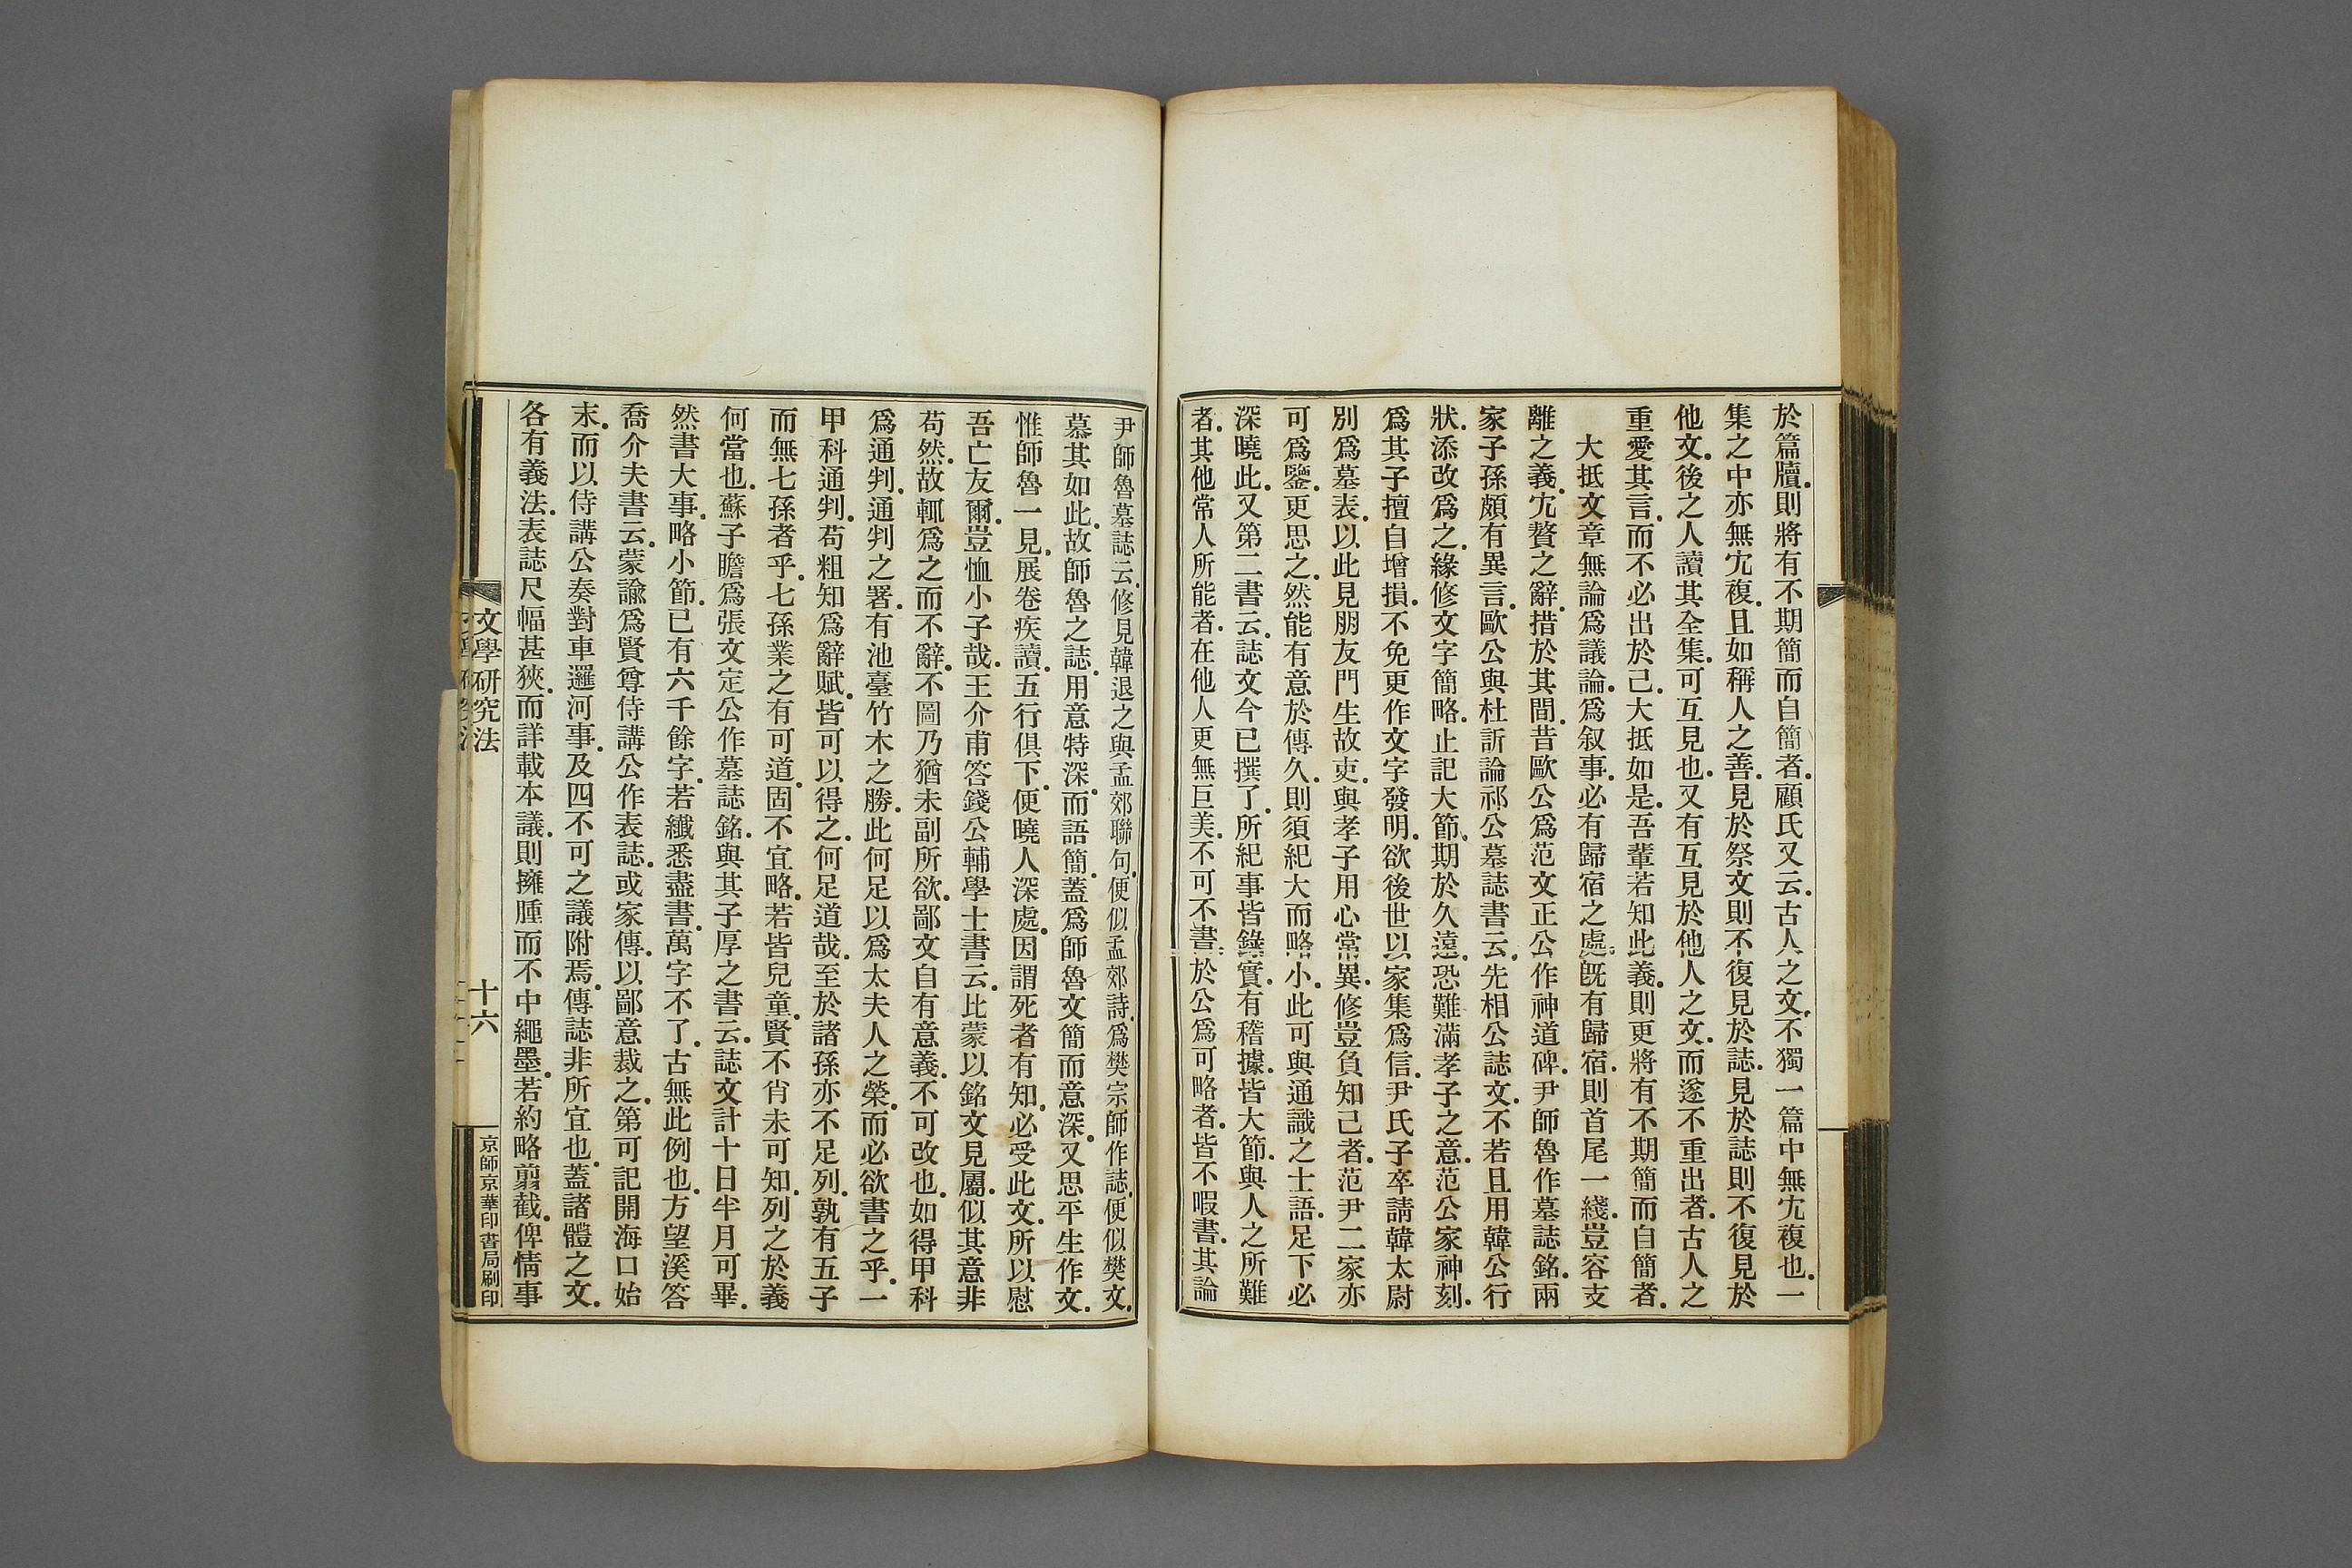 於篇牘．則將有不期簡而自簡者．顧氏又云．古人之文．不獨一篇中無宂複也．一
集之中亦無宂複．且如稱人之善．見於祭文則不復見於誌．見於誌則不復見於
他文．後之人讀其全集．可互見也．又有互見於他人之文．而遂不重出者．古人之
重愛其言．而不必出於己．大抵如是．吾輩若知此義．則更將有不期簡而自簡者．
大抵文章無論爲議論．爲叙事．必有歸宿之處．旣有歸宿．則首尾一綫．豈容支
離之義．宂贅之辭．措於其間．昔歐公爲范文正公作神道碑．尹師魯作墓誌銘．兩
家子孫頗有異言．歐公與杜訢論祁公墓誌書云．先相公誌文．不若且用韓公行
狀．添改爲之．緣修文字簡略．止記大節．期於久遠．恐難滿孝子之意．范公家神刻．
爲其子擅自增損．不免更作文字發明．欲後世以家集爲信．尹氏子卒請韓太尉
別爲墓表．以此見朋友門生故吏．與孝子用心常異．修豈負知己者．范尹二家亦
可爲鑒．更思之．然能有意於傳久．則須紀大而略小．此可與通識之士語．足下必
深曉此．又第二書云．誌文今已撰了．所紀事皆錄實．有稽據．皆大節．與人之所難
者．其他常人所能者．在他人更無巨美．不可不書．於公爲可略者．皆不暇書．其論
尹師魯墓誌云．修見韓退之與孟郊聯句．便似孟郊詩．爲樊宗師作誌．便似樊文．
慕其如此．故師魯之誌．用意特深．而語簡．蓋爲師魯文簡而意深．又思平生作文．
惟師魯一見．展卷疾讀．五行俱下．便曉人深處．因謂死者有知．必受此文．所以慰
吾亡友爾．豈恤小子哉．王介甫答錢公輔學士書云．比蒙以銘文見屬．似其意非
苟然．故輒爲之而不辭．不圖乃猶未副所欲．鄙文自有意義．不可改也．如得甲科
爲通判．通判之署．有池臺竹木之勝．此何足以爲太夫人之榮．而必欲書之乎．一
甲科通判．苟粗知爲辭賦．皆可以得之．何足道哉．至於諸孫亦不足列．孰有五子
而無七孫者乎．七孫業之有可道．固不宜略．若皆兒童．賢不肖未可知．列之於義
何當也．蘇子瞻爲張文定公作墓誌銘．與其子厚之書云．誌文計十日半月可畢．
然書大事．略小節．已有六千餘字．若纖悉盡書．萬字不了．古無此例也．方望溪答
喬介夫書云．蒙諭爲賢尊侍講公作表誌．或家傳．以鄙意裁之．第可記開海口始
末．而以侍講公奏對車邏河事．及四不可之議附焉．傳誌非所宜也．蓋諸體之文．
各有義法．表誌尺幅甚狹．而詳載本議．則擁腫而不中繩墨．若約略翦截．俾情事
文學研究法
十六
京師京華印書局刷印